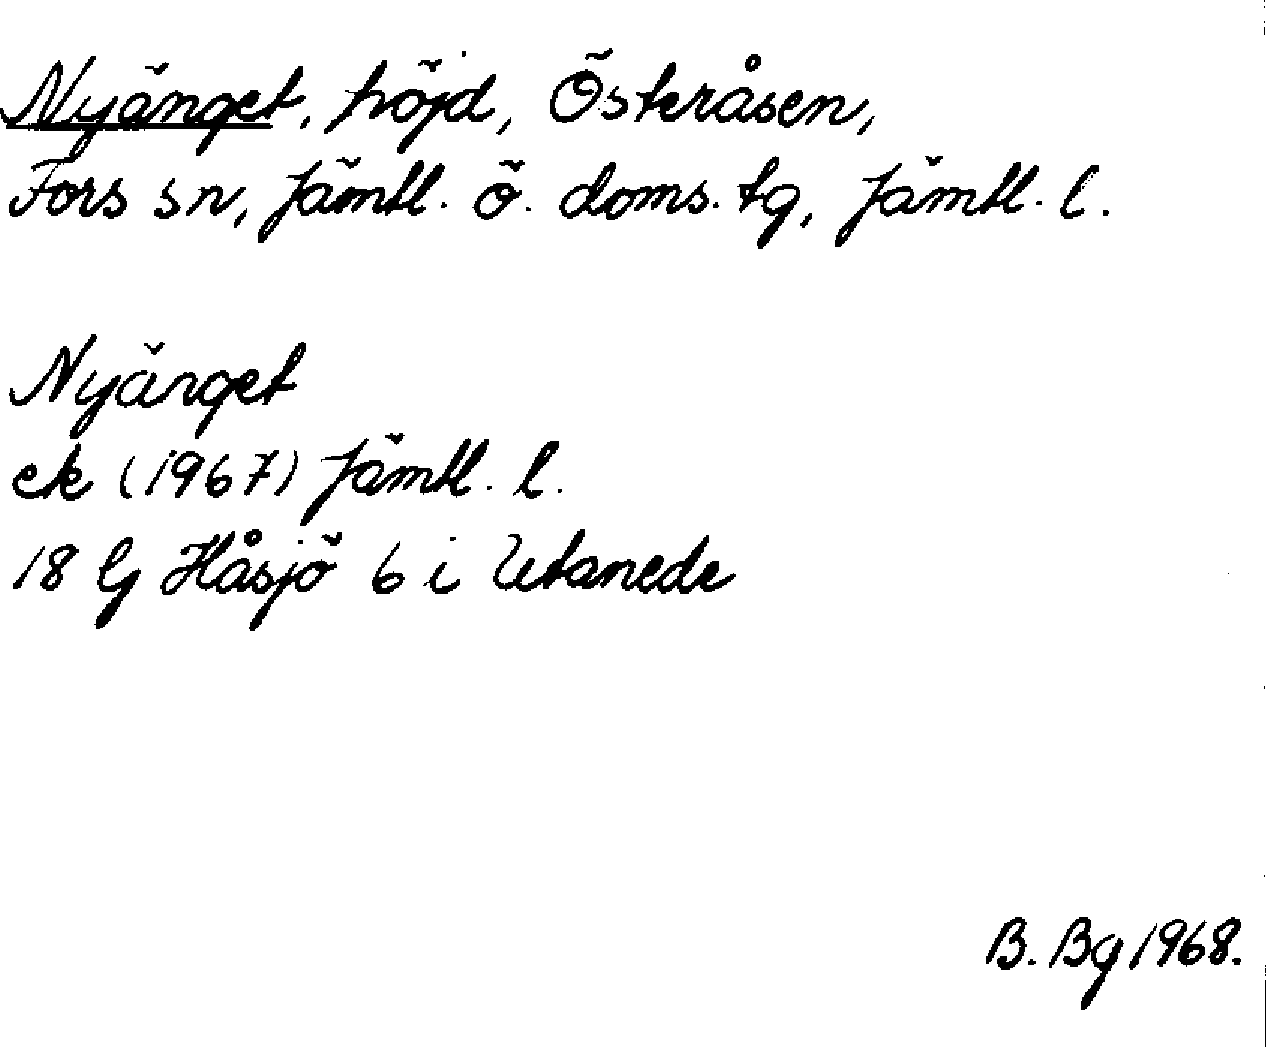 Nyänget, höjd, Österåsen,
Fors sn, Jämtl. ö. doms. tg, Jämtl. l.
Nyänget
ek (1967) Jämtl. l.
18 G Håsjö 6 i Utanede
B. Bg 1968.